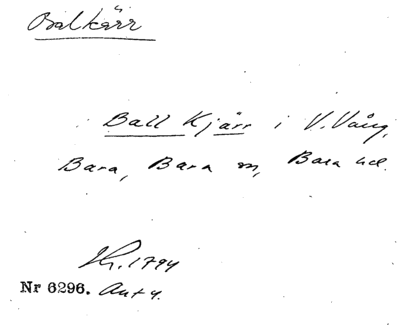 Balkärr
Ball Kjärr i V. Vång,
Bara, Bara sn, Bara hd.
1794
Nr 6296. Ant 4.